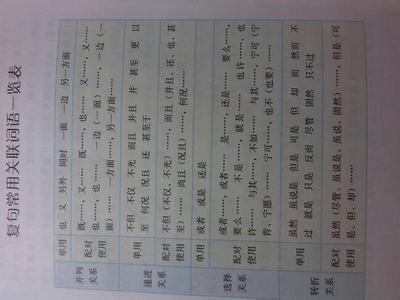 复句常用关联词语一览表
并列关系
单用
也 又 另外 同时 一面 一边 另一方面
配对使用
既……，又…… 既……，也…… 又……，又……
也……，也…… 一边（一面）……，一边（一面）…… 一方面……，另一方面……
递进关系
单用
不但 不仅 不光 而且 并且 并 甚至 更 以至 何况 况且 还 甚至于
配对使用
不但（不仅、不光）……，而且（并且、还、也、甚至）…… 尚且（况且）……，何况……
选择关系
单用
或者 或是 还是
配对使用
或者……，或者…… 是……，还是…… 要么……，要么…… 不是……，就是…… 也许……，也许…… 与其……，不如…… 与其……，宁可（宁肯、宁愿）…… 宁可……，也不（也要）……
转折关系
单用
虽然 虽说 但是 可是 但 却 而 然而 不过 就是 只是 反而 尽管 固然 只不过
配对使用
虽然（尽管、虽是、虽说、固然）……，但是（可是、但、却）……